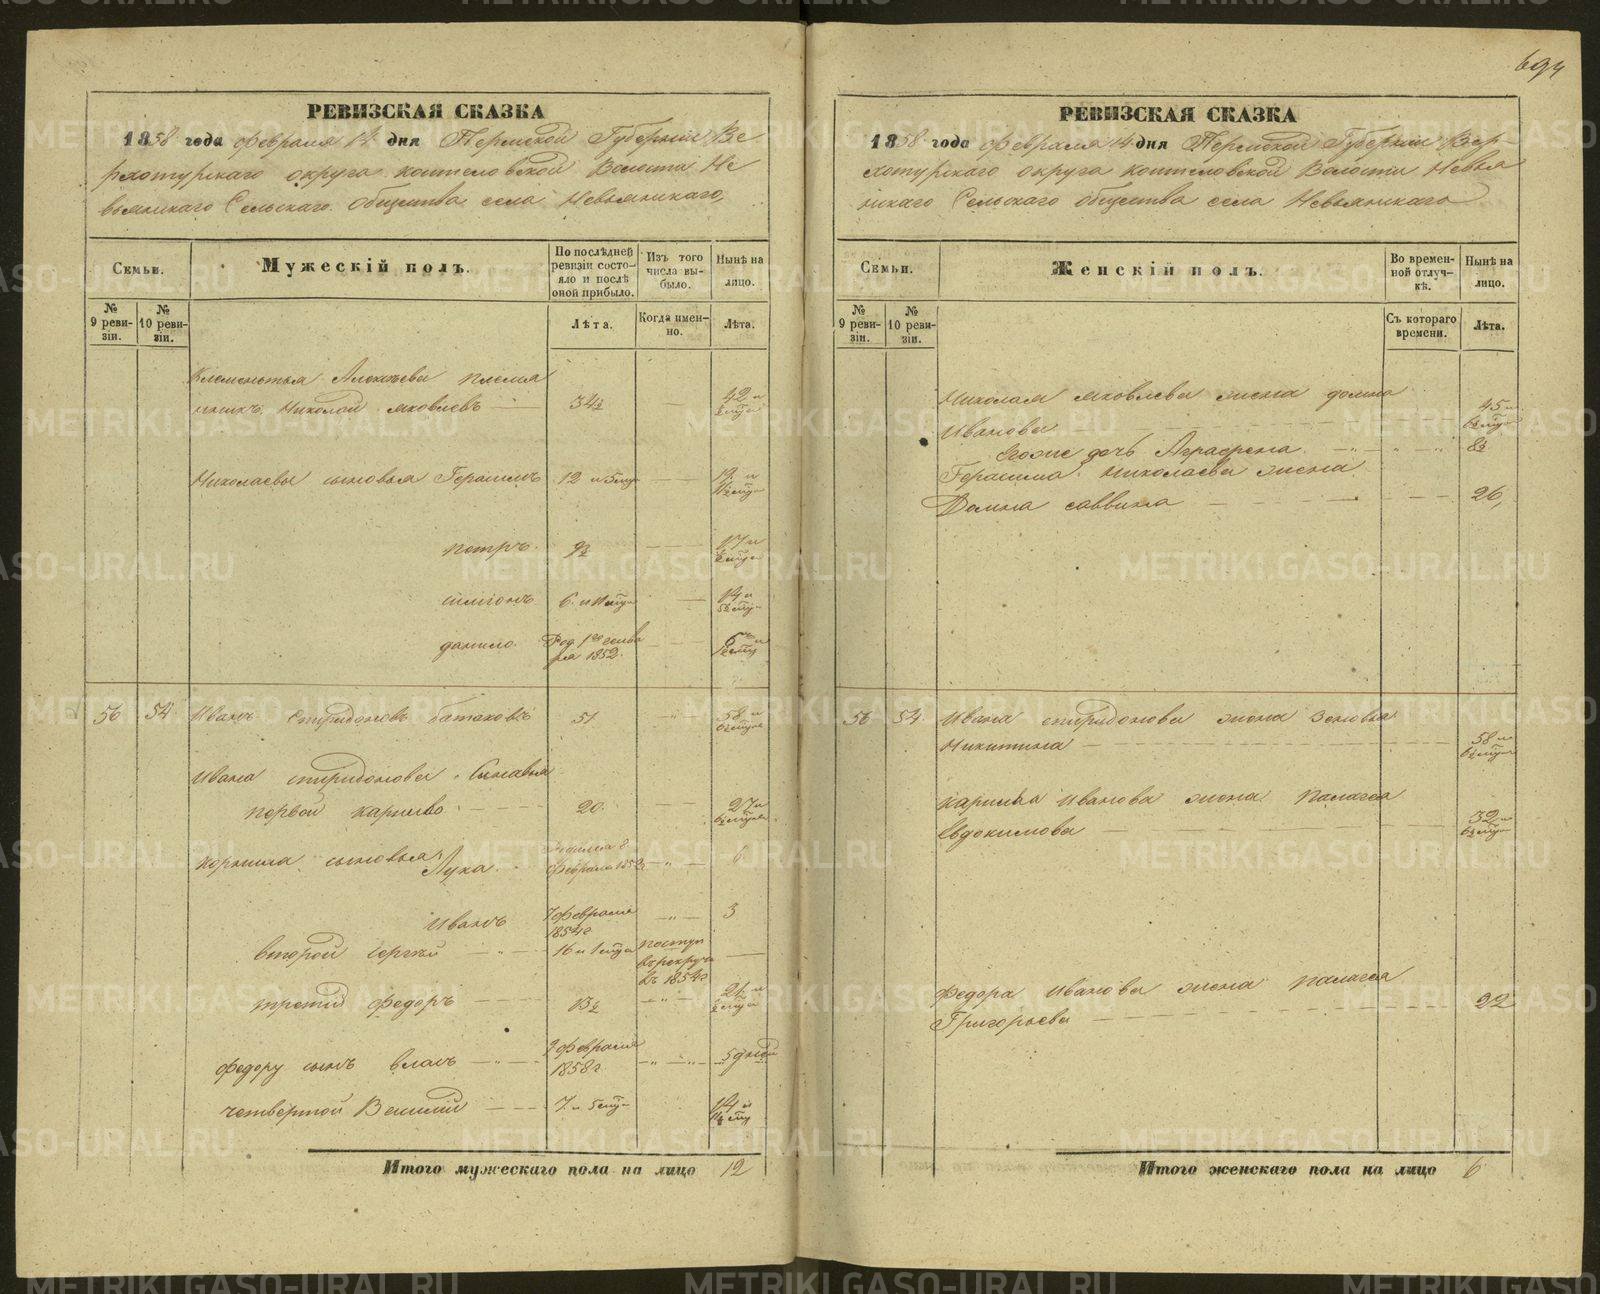 694
РЕВИЗСКАЯ СКАЗКА
1858 года февраля 14 дня Пермской Губернии Ве
рхотурскаго округа Костысловской Волости Не
вьянскаго Сельскаго общества села Невьянскаго,
Семьи.
Мужескій полъ.
По послѣдней ревизіи состояло и послѣ оной прибыло.
Изъ того числа выбыло.
Нынѣ на лицо.
№ 9 ревизіи.
№ 10 ревизіи.
Лѣта.
Когда именно.
Лѣта.
Алексѣева племя
нникъ Николай яковлевъ 34½ 42 и
Николаевы сыновья Герасимъ 12 и 5 19 и
петръ 9½ 17 и
6 и 11 14 и
данило
1852.
56 54 Иванъ спиридоновъ батаковъ 51 58 и
Ивана спиридонова Сыновья
первой карнило 20. 27 и
корнила сыновья Лука
февраля 1852г 6
Иванъ 7 февраля 1854г 3
второй 16 и 1 поступ въ рекруты въ 1854г
третій федоръ 13½ 21 и
федору сынъ власъ 9 февраля 1858г 5 дней
четвертой Василій 7. и 5 14 и
Итого мужескаго пола на лицо 12
РЕВИЗСКАЯ СКАЗКА
1858 года февраля 14 дня Пермской Губернии Вер-
хотурскаго округа Костысловской Волости Невья
нскаго Сельскаго общества села Невьянскаго
Семьи.
Женскій полъ.
Во временной отлучкѣ.
Нынѣ на лицо.
№ 9 ревизіи.
№ 10 ревизіи.
Съ котораго времени.
Лѣта.
Николая яковлева жена домна
Иванова 45 и
егоже дочь Аграфена 8½
Герасима Николаева жена
Домна саввина 26,
56 54 Ивана спиридонова жена Зеновья
Никитина 58 и
карнила Иванова жена Палагея
Евдокимова 32 и
Федора Иванова жена палагея
Григорьева 22
Итого женскаго пола на лицо 6
METRIKI.GASO-URAL.RU